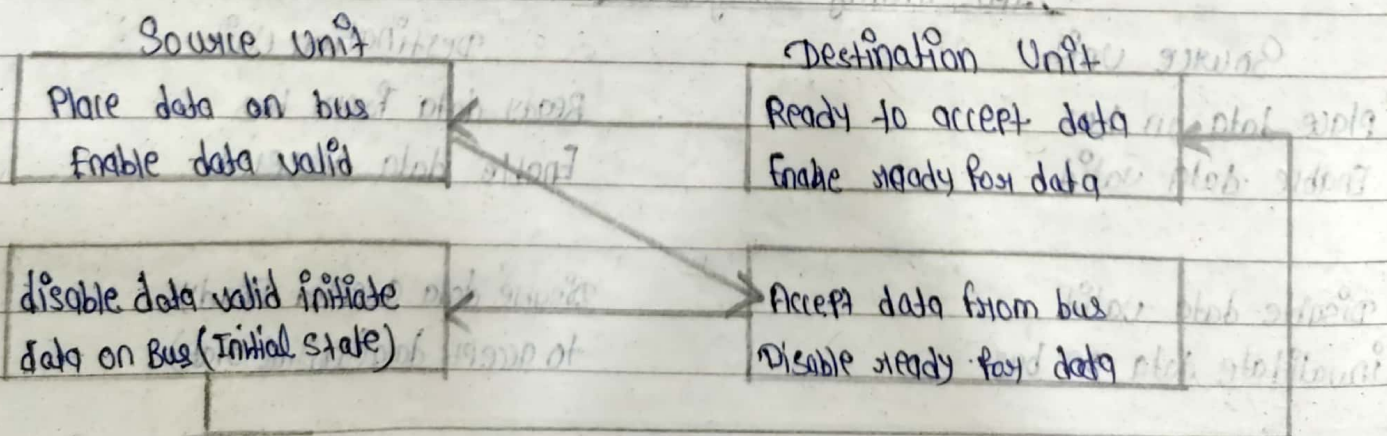 Source Unit
Place data on bus
Enable data valid
disable data valid initiate
data on Bus (Initial State)
Destination Unit
Ready to accept data
Enabe ready for data
Accept data from bus
Disable ready for data